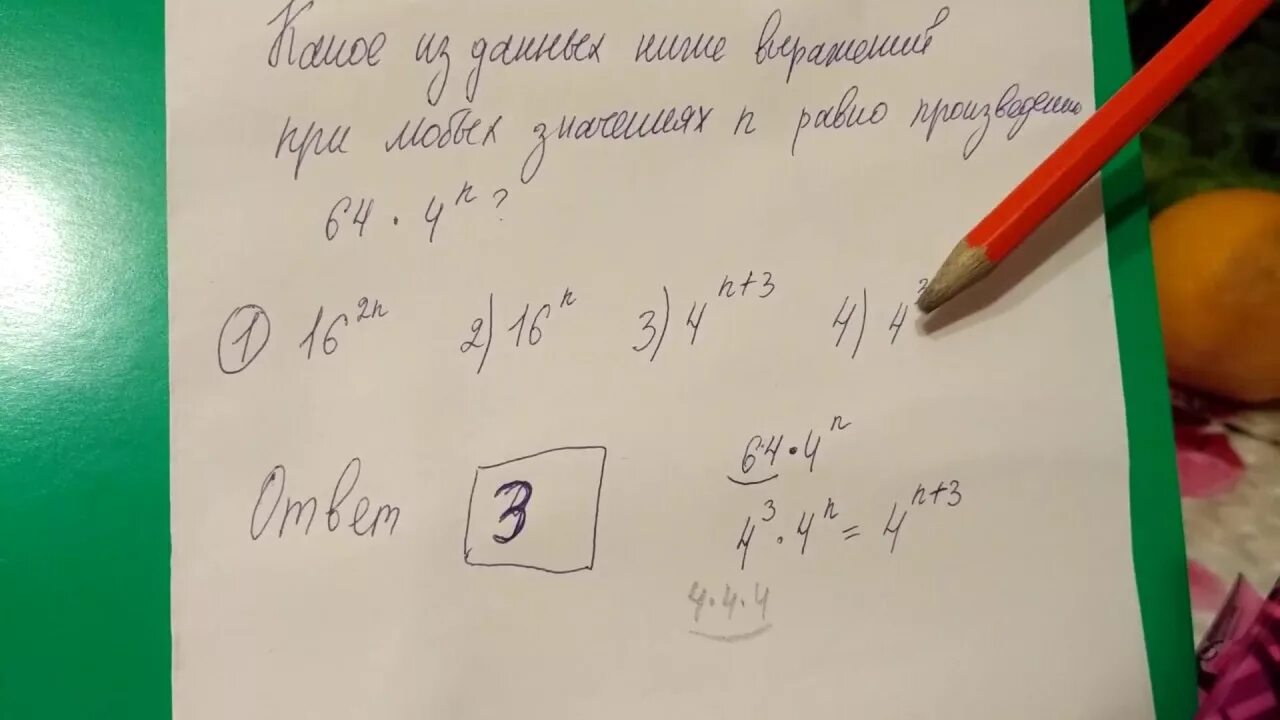 Какое из данных ниже выражений
при любых значениях n равно произведению
64 · 4ⁿ?
1 16²ⁿ 2) 16ⁿ 3) 4ⁿ⁺³ 4) 4
64 · 4ⁿ
Ответ 3
4³ · 4ⁿ = 4ⁿ⁺³
4·4·4